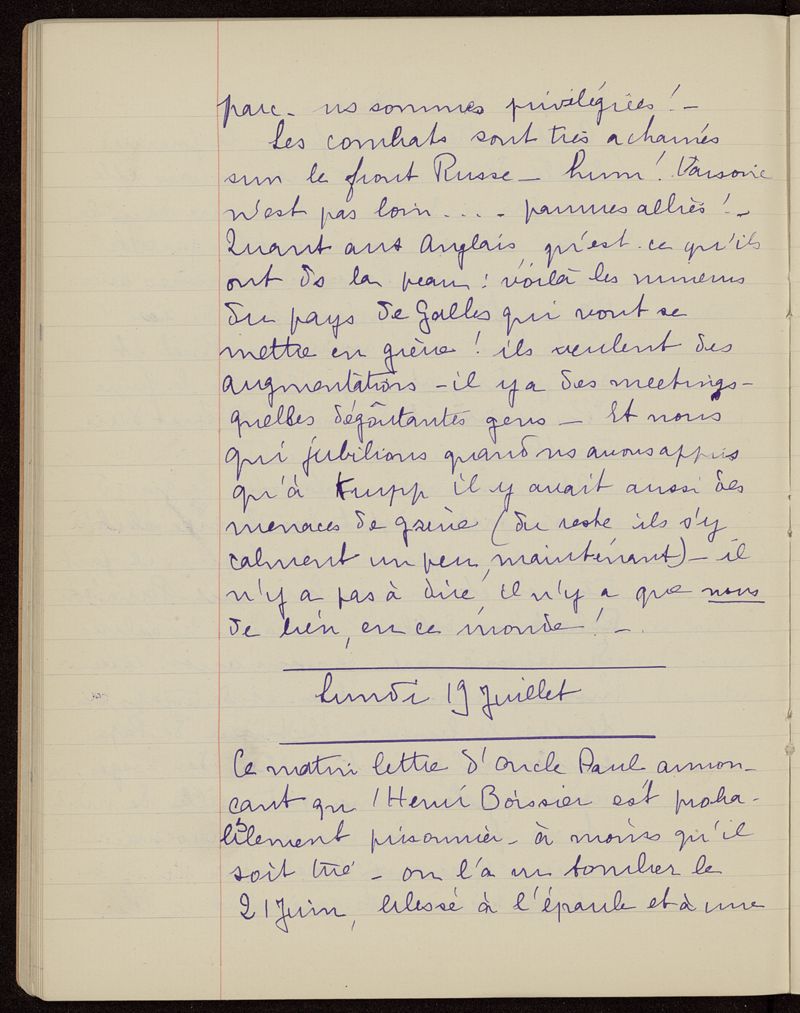 parc - ns sommes privilégiées ! -
Les combats sont très acharnés
sur le front Russe - hum ! Varsovie
n'est pas loin .... - pauvres alliés ! -
Quant aux Anglais, qu'est-ce qu'ils
ont ds la peau : voilà les mineurs
du pays de Galles qui vont se
mettre en grève ! ils veulent des
augmentations - il y a des meetings -
quelles dégoûtantes gens - Et nous
qui jubilions quand ns avons appris
qu'à Krupp il y avait aussi des
menaces de grève (du reste ils s'y
calment un peu, maintenant) - il
n'y a pas à dire, il n'y a que nous
de bien, en ce monde ! -
Lundi 19 Juillet
Ce matin lettre d'Oncle Paul annon-
çant qu'Henri Boissier est proba-
blement prisonnier - à moins qu'il
soit tué - on l'a vu tomber le
21 Juin, blessé à l'épaule et à une